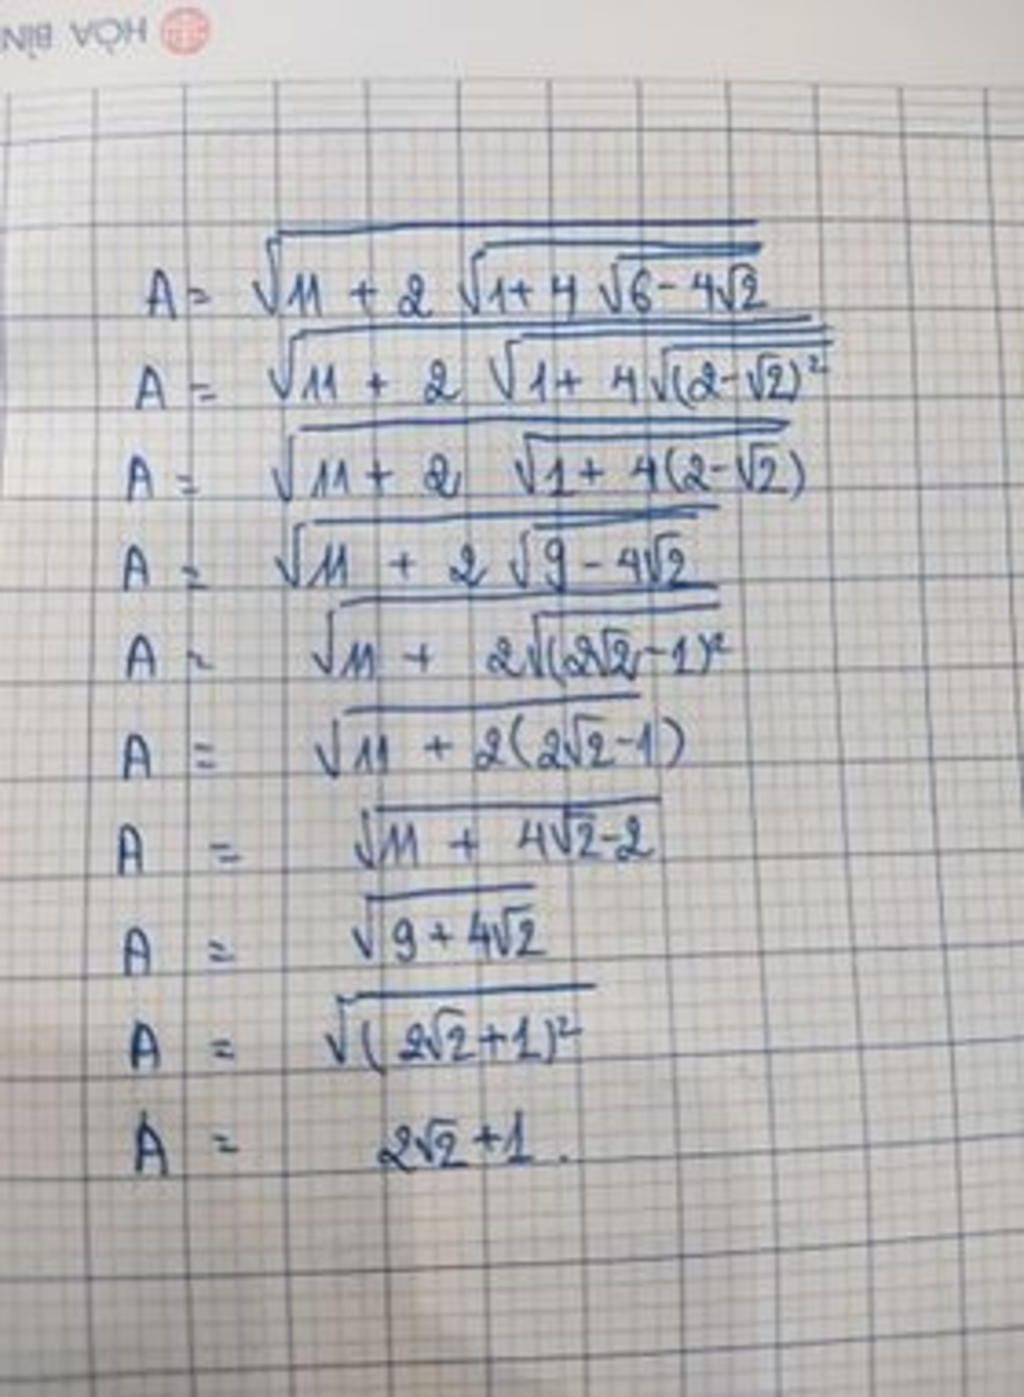 HÒA BÌN
A = √(11 + 2 √(1 + 4 √(6 - 4√2)))
A = √(11 + 2 √(1 + 4√((2-√2)²)))
A = √(11 + 2 √(1 + 4(2-√2)))
A = √(11 + 2 √(9 - 4√2))
A = √(11 + 2√((2√2-1)²))
A = √(11 + 2(2√2-1))
A = √(11 + 4√2-2)
A = √(9 + 4√2)
A = √((2√2+1)²)
A = 2√2 + 1.